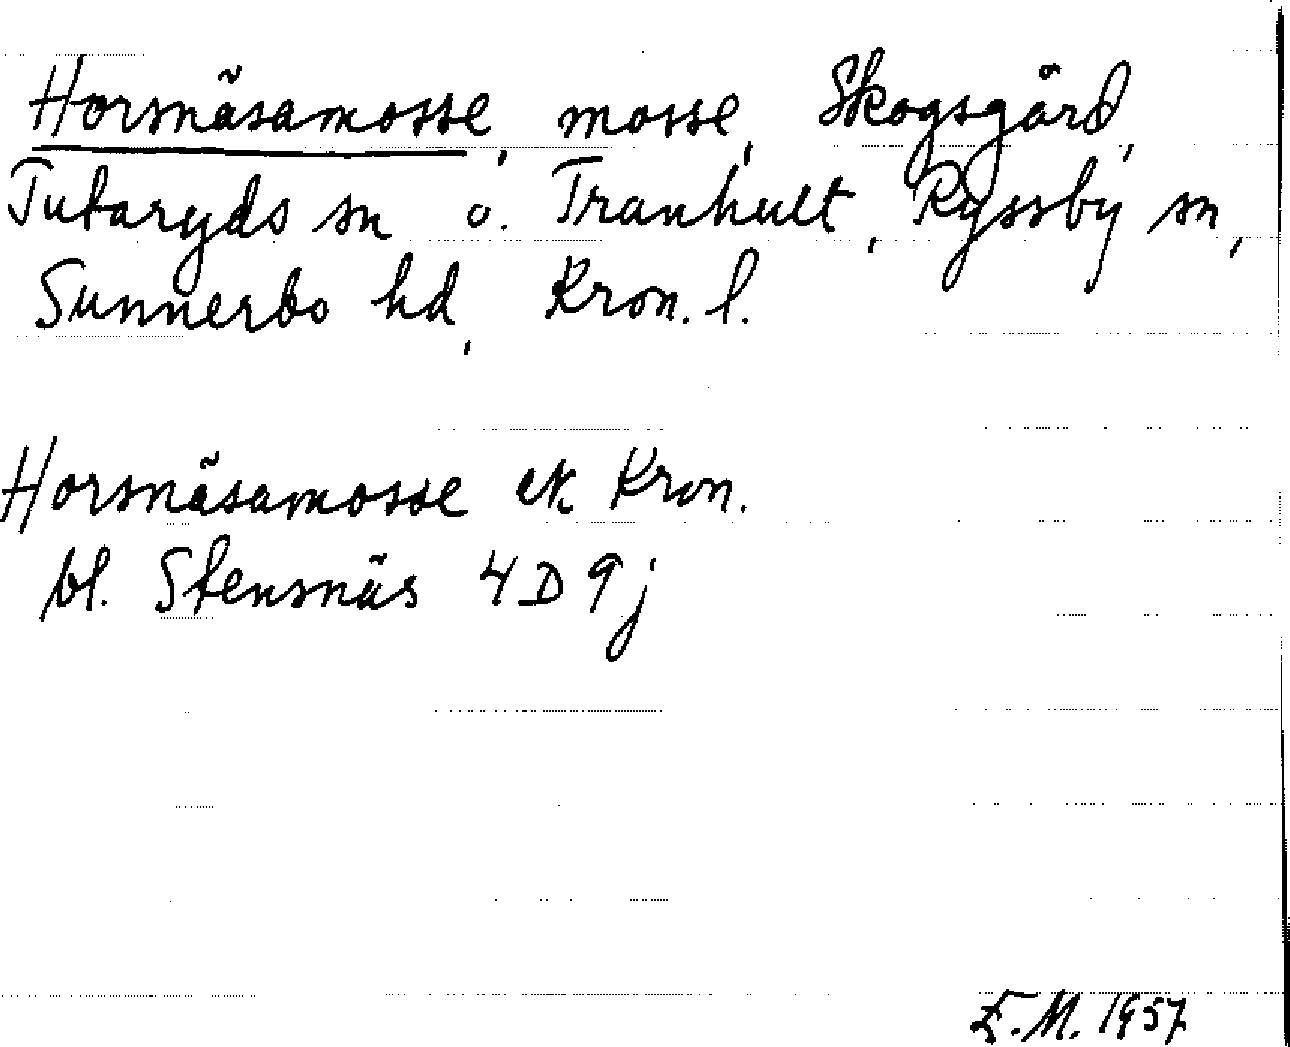 Horsnäsamosse, mosse, Skogsgård,
Tutaryds sn o. Tranhult, Ryssby sn,
Sunnerbo hd, Kron. l.
Horsnäsamosse ek Kron.
bl. Stensnäs 4D9j
E.M. 1957